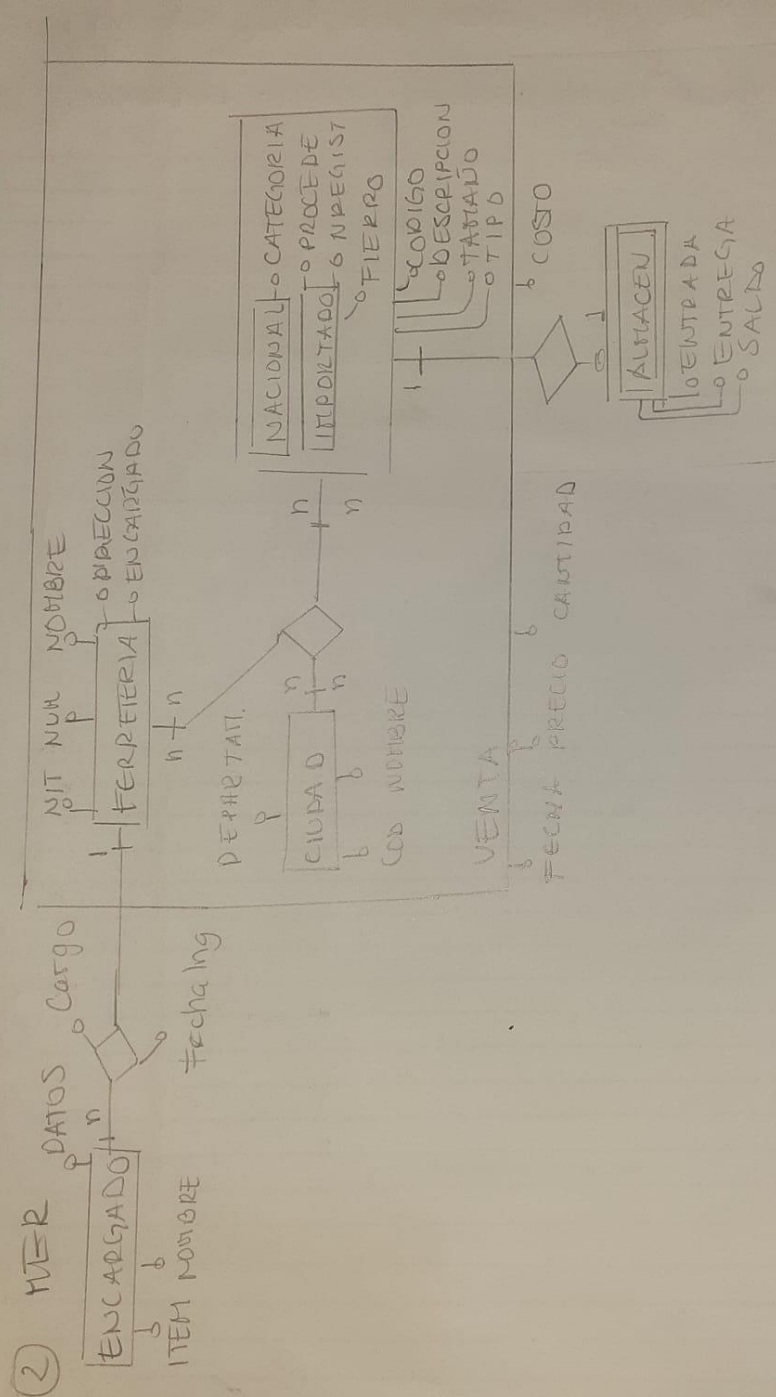 2 MER
DATOS
ENCARGADO
ITEM NOMBRE
n
Cargo
Fecha Ing
1
NIT NUM NOMBRE
FERRETERIA
DIRECCION
ENCARGADO
n n
DEPARTAM.
CIUDAD
n
n
COD NOMBRE
n
n
NACIONAL CATEGORIA
IMPORTADO PROCEDE
NREGIST
FIERRO
CODIGO
DESCRIPCION
TAMAÑO
TIPO
1
VENTA
FECHA PRECIO CANTIDAD
COSTO
1
ALMACEN
ENTRADA
ENTREGA
SALDO